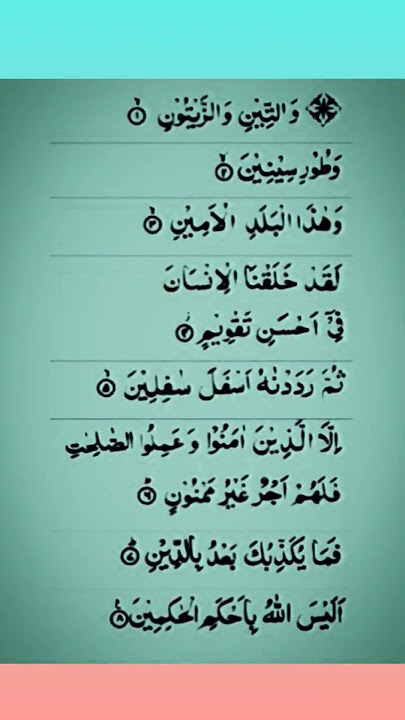 وَالتِّيْنِ وَالزَّيْتُوْنِ ۙ﴿۱﴾
وَطُوْرِ سِيْنِيْنَ ۙ﴿۲﴾
وَهٰذَا الْبَلَدِ الْاَمِيْنِ ۙ﴿۳﴾
لَقَدْ خَلَقْنَا الْاِنْسَانَ
فِيْۤ اَحْسَنِ تَقْوِيْمٍ ۫﴿۴﴾
ثُمَّ رَدَدْنٰهُ اَسْفَلَ سٰفِلِيْنَ ۙ﴿۵﴾
اِلَّا الَّذِيْنَ اٰمَنُوْا وَ عَمِلُوا الصّٰلِحٰتِ
فَلَهُمْ اَجْرٌ غَيْرُ مَمْنُوْنٍ ؕ﴿۶﴾
فَمَا يُكَذِّبُكَ بَعْدُ بِالدِّيْنِ ؕ﴿۷﴾
اَلَيْسَ اللّٰهُ بِاَحْكَمِ الْحٰكِمِيْنَ ﴿۸﴾